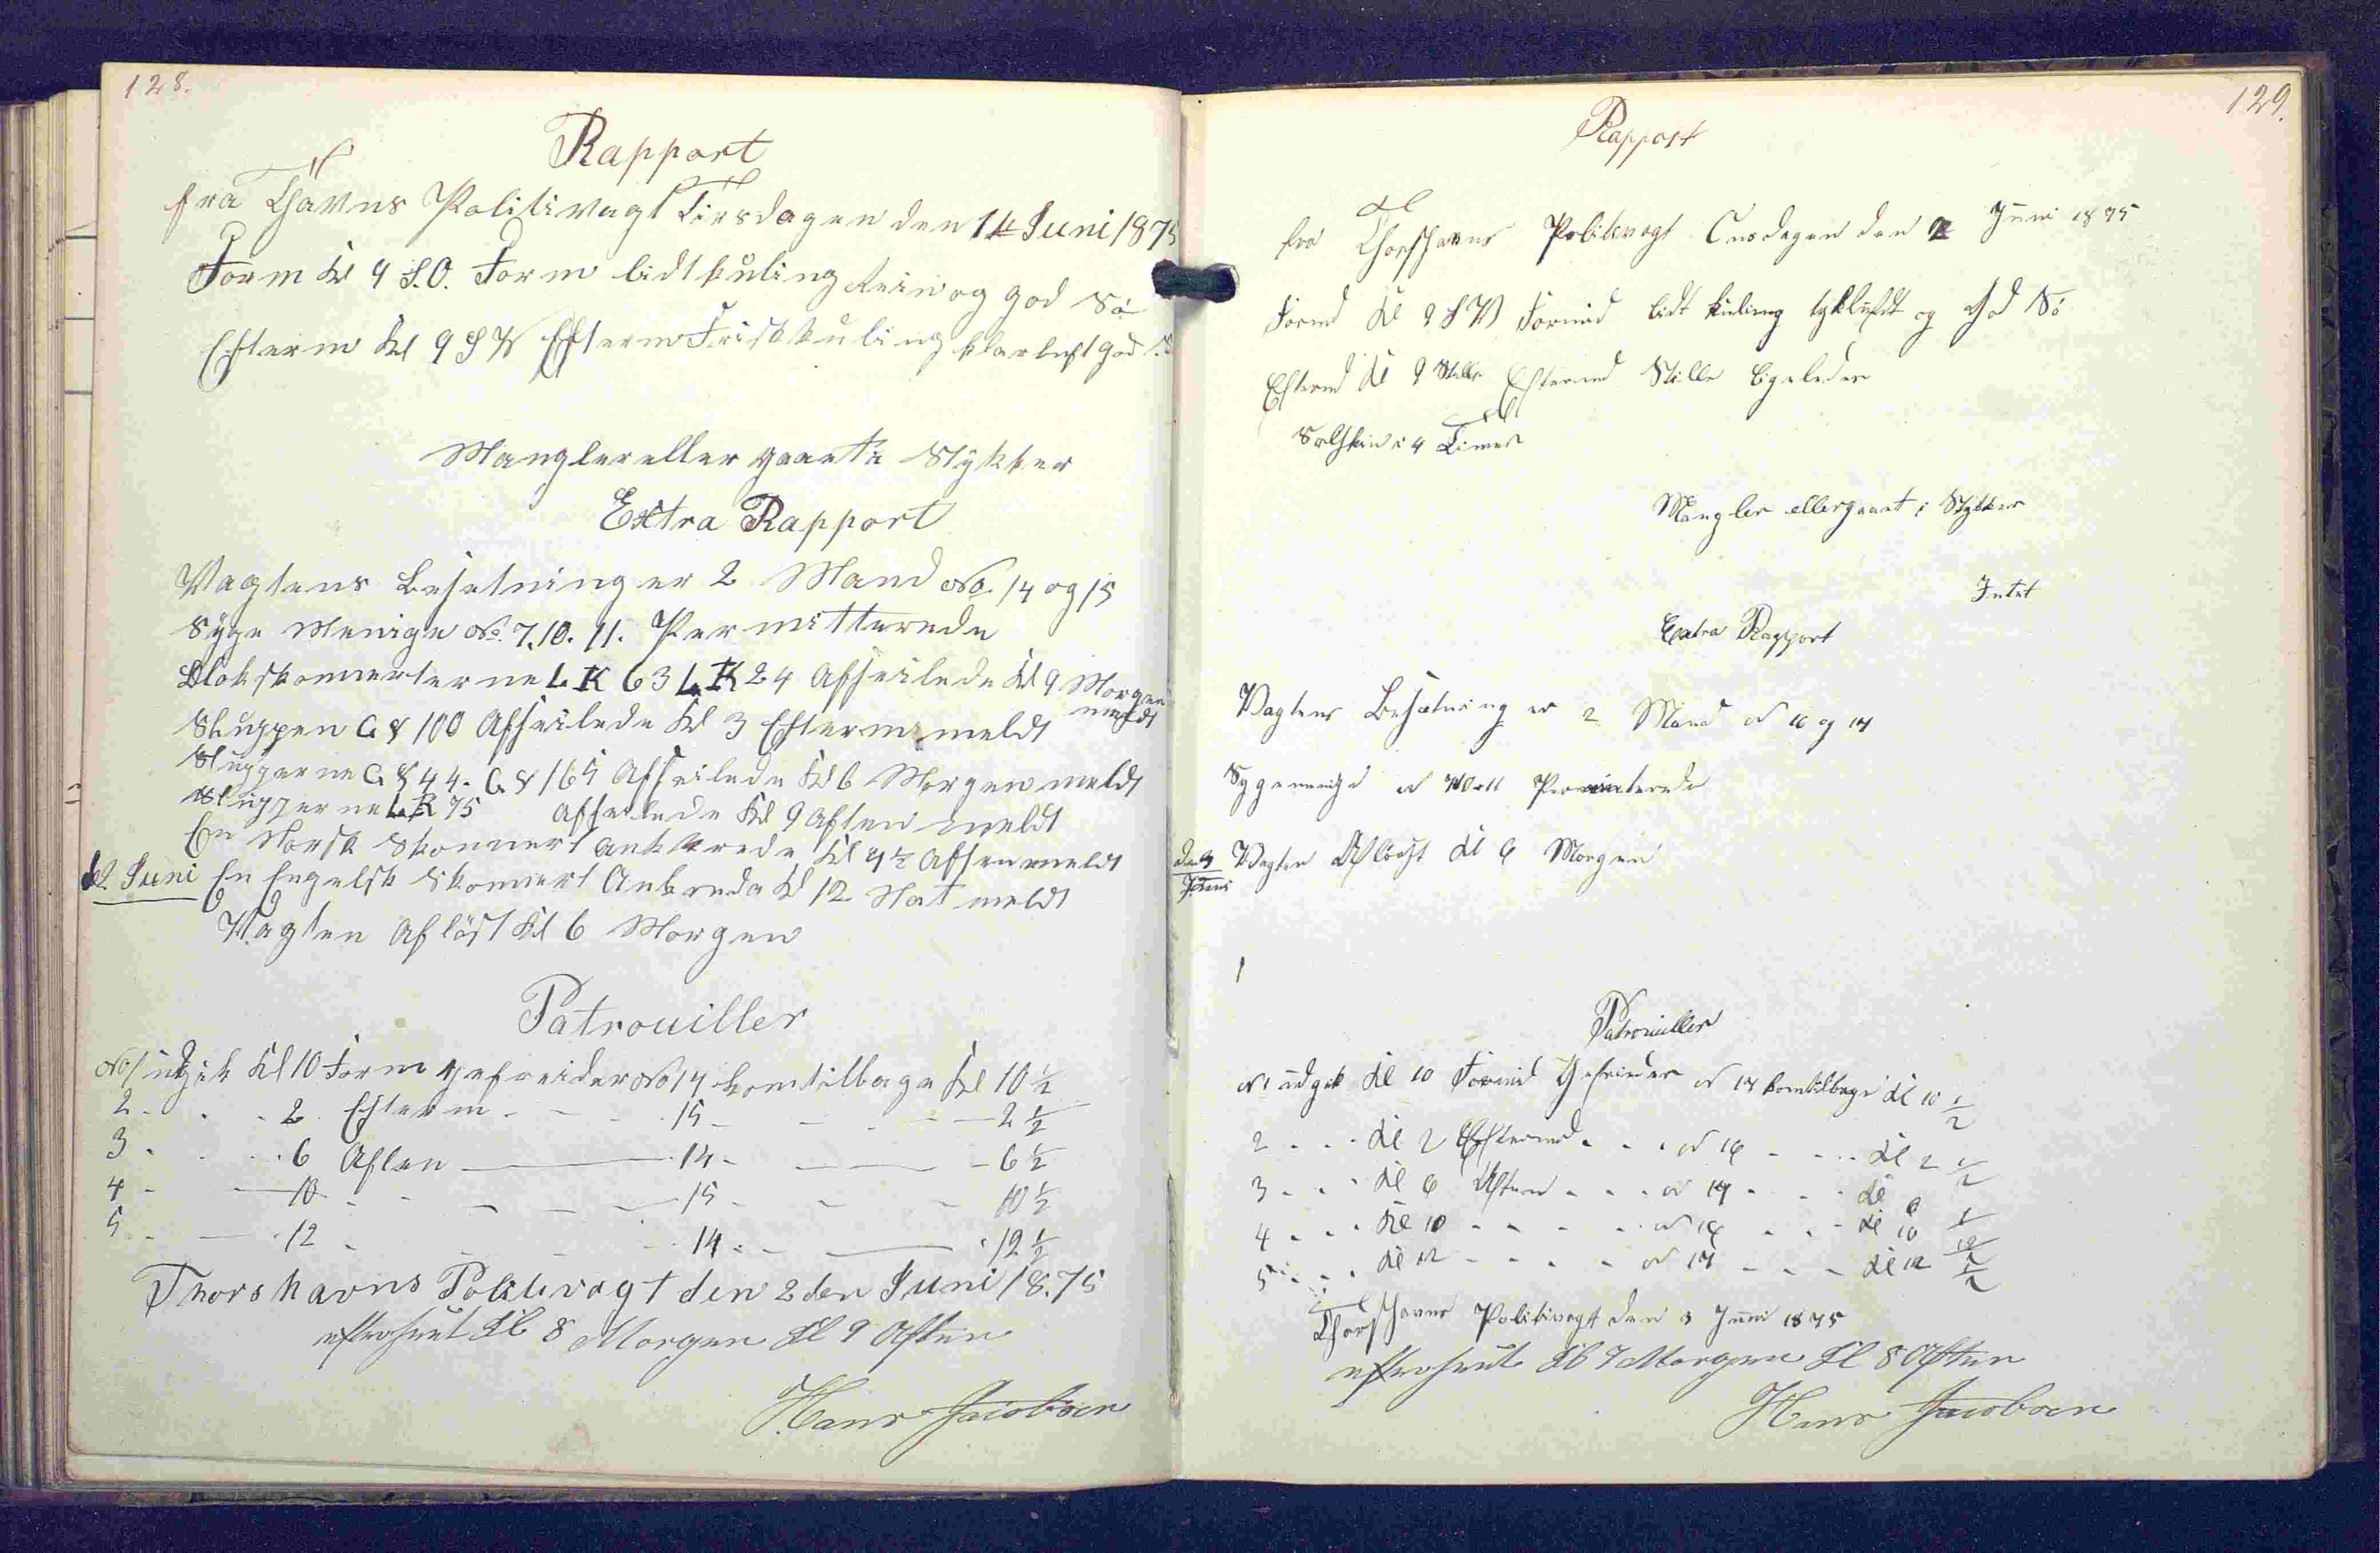 128.
Rapport
fra Thavns Politivagt Tirsdagen den 1ste Juni 1875
Form Kl 9 S.O. Form lidt kuling Rein og god Sö
Efterm Kl 9 S V Efterm Frisk kuling klar luft god
Mangler eller gaaet i Stykker
Extra Rapport
Vagtens Besetning er 2 Mand No. 14 og 15
Syge Menige No. 7. 10. 11. Permitterede
Slokskonnerterne L K 63 L K 24 Afseilede Kl 9 Morgen meldt
Sluppen G S 100 Afseilede Kl 3 Efterm meldt
Slupperne G S 44. G S 165 Afseilede Kl 6 Morgen meldt
Slupperne L R 75 Afseilede Kl 9 Aften meldt
En Norsk Skonnert Ankkrede Kl 9½ Aften meldt
d 2 Juni En Engelsk Skonnert Ankrede Kl 12 Nat meldt
Vagten Aflöst Kl 6 Morgen
Patrouiller
No 1 udgik Kl 10 Form Gefreider No 14 kom tilbage Kl 10 ½
2 - - - 2 Efterm - - - 15 - - - 2 ½
3 - - - 6 Aften - 14 - - - 6 ½
4 - - 10 - - - 15 - - - 10 ½
5 - - 12 - - - 14 - - 12 ½
Thorshavns Politivagt den 2den Juni 18.75
efterseet Kl 8 Morgen Kl 9 Aften
Hans Jacobsen
129.
Rapport
fra Thorshavns Politivagt Onsdagen den 2 Juni 1875
Formd Kl 9 S V Formid lidt kuling tykluft og God Sö
Eftermd Kl 9 Stille Eftermd Stille ligeledes
Solskin i 4 Timer
Mangler eller gaaet i Stykker
Intet
Extra Rapport
Vagtens Besætning er 2 Mand No 16 og 17
Sygemenige No 7 10 og 11 Permiterede
den 3 Juni Vagten Aflöst Kl 6 Morgen
Patrouiller
No 1 udgik Kl 10 Formid Gefreider No 17 kom tilbage Kl 10 ½
2 - - - Kl 2 Eftermd - - - No 16 - - - Kl 2 ½
3 - - - Kl 6 Aften - - - No 17 - - - Kl 6 ½
4 - - - Kl 10 - - - - No 16 - - - Kl 10 ½
5 - - - Kl 12 - - - - No 17 - - - Kl 12 ½
Thorshavns Politivagt den 3 Juni 1875
efterseet Kl 7 Morgen Kl 8 Aften
Hans Jacobsen